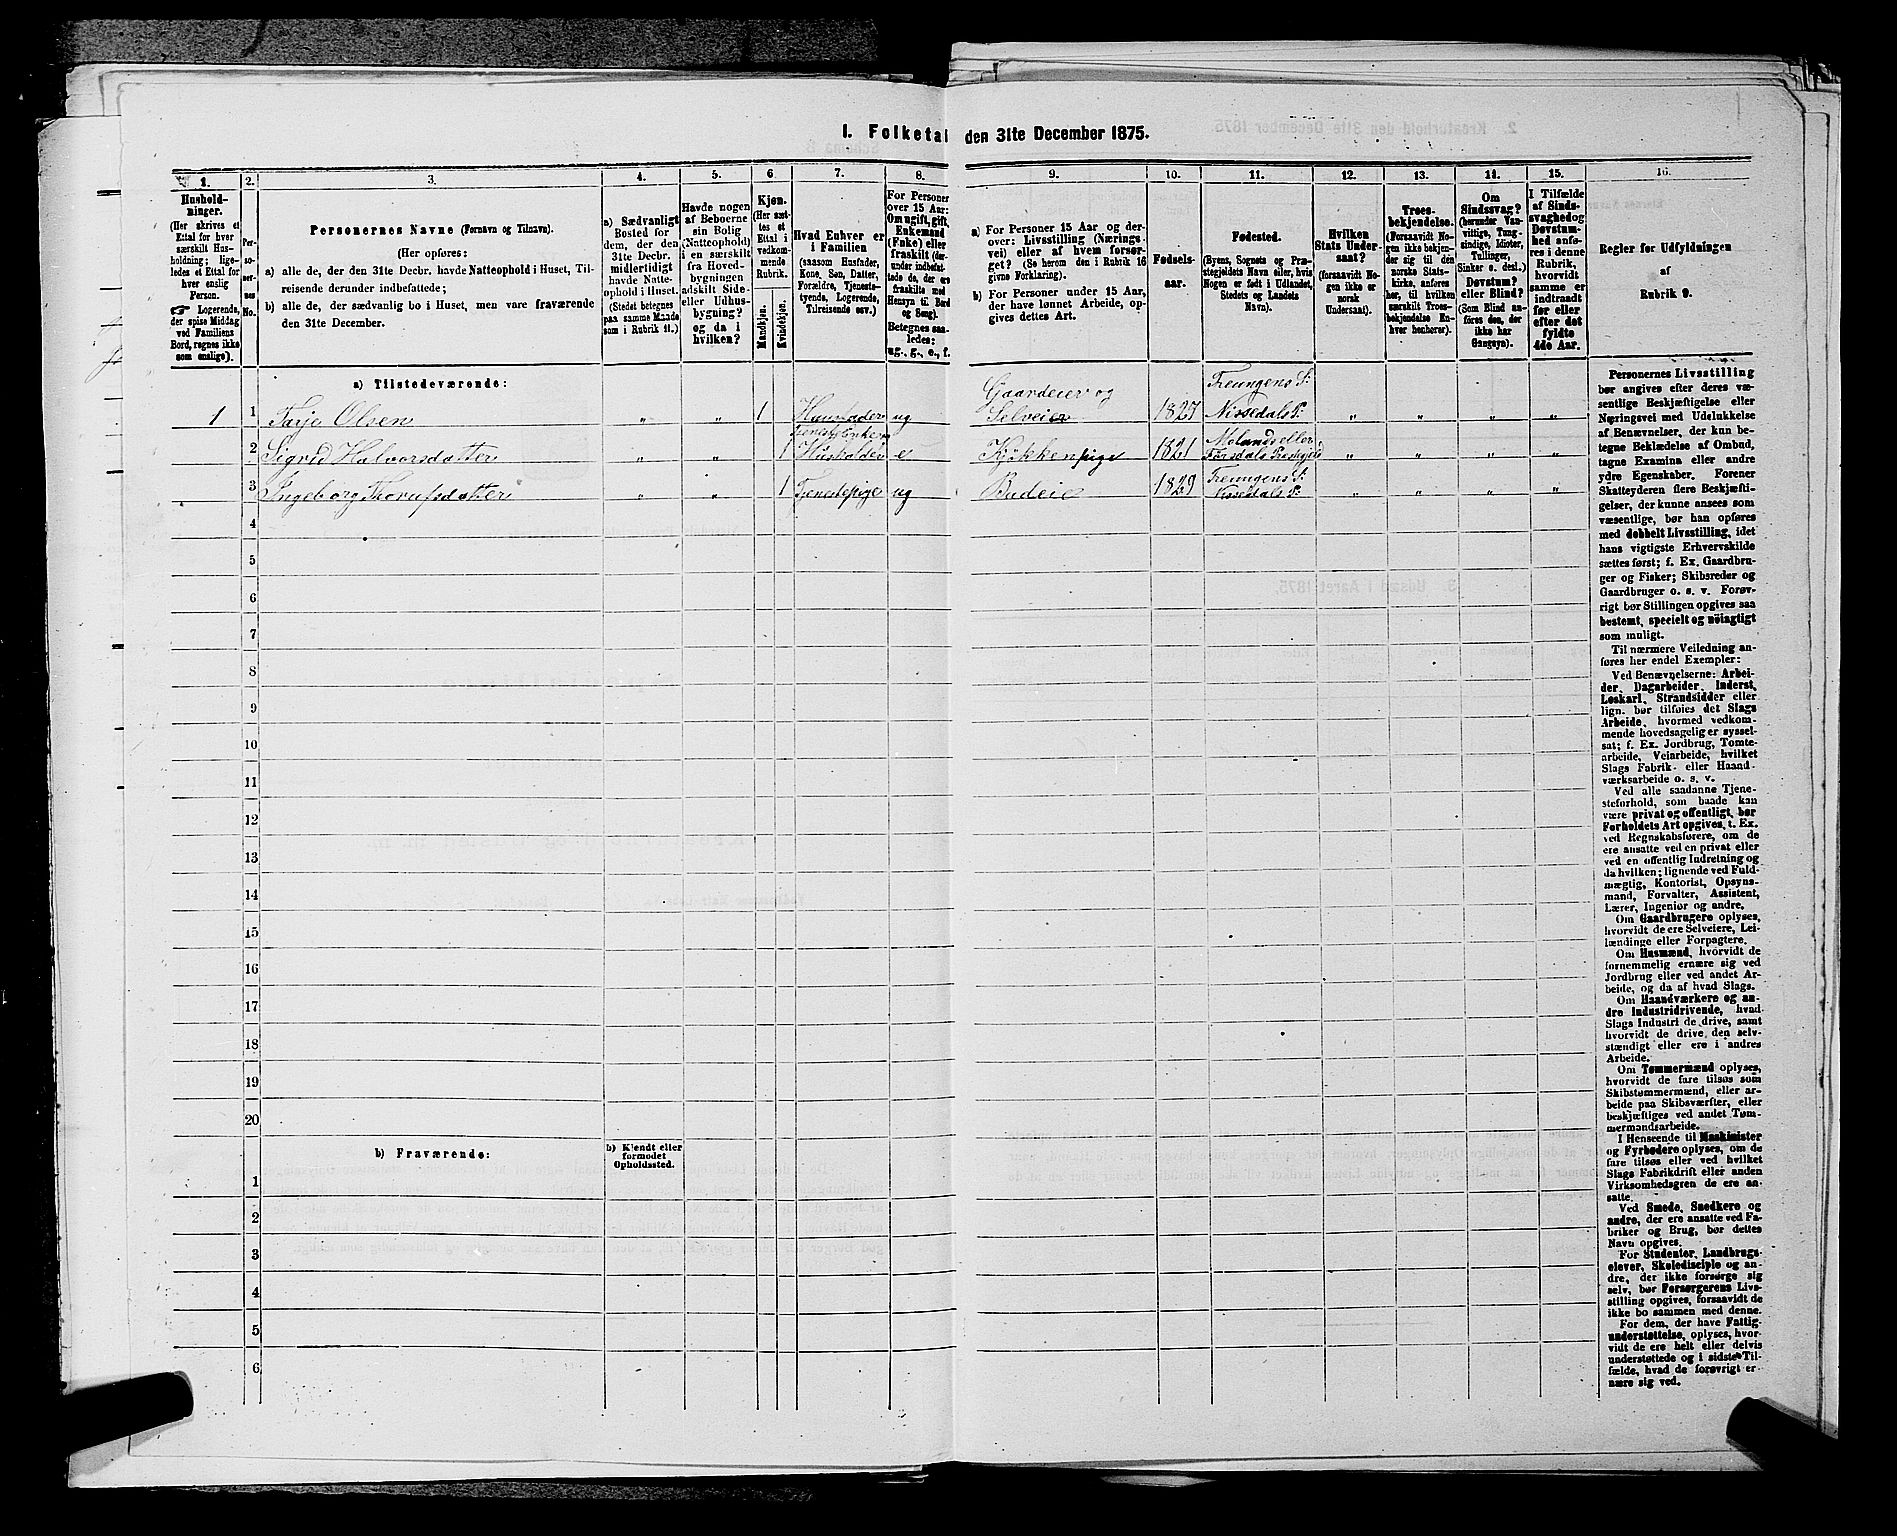 I. Folketal den 31te December 1875.
1.
Hushold-
ninger.
(Her skrives et
Ettal for hver
særskilt Hus-
holdning; lige-
ledes et Ettal for
hver enslig
Person.
Logerende,
der spise Middag
ved Familiens
Bord, regnes ikke
som enslige).
2.
Per-
soner-
nes
No.
3.
Personernes Navne (Fornavn og Tilnavn).
(Her opføres:
a) alle de, der den 31te Decbr. havde Natteophold i Huset, Til-
reisende derunder indbefattede;
b) alle de, der sædvanlig bo i Huset, men vare fraværende
den 31te December.
4.
a) Sædvanligt
Bosted for
dem, der den
31te Decbr.
midlertidigt
havde Natte-
ophold i Huset.
(Stedet betegnes
paa samme Maade
som i Rubrik 11.)
5.
Havde nogen
af Beboerne
sin Bolig
(Natteophold)
i en særskilt
fra Hoved-
bygningen
adskilt Side-
eller Udhus-
bygning?
og da i
hvilken?
6.
Kjøn.
(Her sæt-
tes et
Ettal i
vedkom-
mende
Rubrik.
Mandkjøn.
Kvindekjøn.
7.
Hvad Enhver er
i Familien
(saasom Husfader,
Kone, Søn, Datter,
Forældre, Tjeneste-
tyende, Logerende,
Tilreisende osv.)
8.
For Personer
over 15 Aar:
Om ugift, gift,
Enkemand
(Enke) eller
fraskilt (der-
under indbefat-
tede de, der ere
fraskilte med
Hensyn til Bord
og Seng).
Betegnes saa-
ledes:
ug., g., e., f.
9.
a) For Personer 15 Aar og der-
over: Livsstilling (Nærings-
vei) eller af hvem forsør-
get? (Se herom den i Rubrik 16
givne Forklaring).
b) For Personer under 15 Aar,
der have lønnet Arbeide, op-
gives dettes Art.
10.
Fødsels-
aar.
11.
Fødested.
(Byens, Sognets og Præ-
stegjeldets Navn eller, hvis
Nogen er født i Udlandet,
Stedets og Landets
Navn).
12.
Hvilken
Stats Under-
saat?
(forsaavidt No-
gen ikke er
norsk
Undersaat).
13.
Troes-
bekjendelse.
(Forsaavidt No-
gen ikke bekjen-
der sig til den
norske Stats-
kirke, anføres
her, til hvilken
særskilt Troes-
bekjendelse En-
hver henhører).
14.
Om
Sindssvag?
(herunder Van-
vittige, Tung-
sindige, Idioter,
Tullinger,
Sinker o. desl.)
Døvstum?
eller Blind?
(Som Blind an-
føres den, der
ikke har
Gangsyn).
15.
I Tilfælde
af Sinds-
svaghed og
Døvstum-
hed anfø-
res i denne
Rubrik,
hvorvidt
samme er
indtraadt
før eller
efter det
fyldte
4de Aar.
16.
Regler for Udfyldningen
af
Rubrik 9.
a) Tilstedeværende:
1 1 Tarje Olsen „ „ 1 Husfader ug Gaardeier og Selveier 1827 Treungens S: Nissedals P: „ „ „ „
2 Sigrid Halvorsdatter „ „ 1 Husholder e Kjøkkenpige 1821 Molands eller Fyrsdals „ „ „ „
3 Ingeborg „ „ 1 Tjenestepige ug Budeie 1829 Treungens S: Nissedals P: „ „ „ „
4
5
6
7
8
9
10
11
12
13
14
15
16
17
18
19
20
b) Fraværende:
b) Kjendt eller
formodet
Opholdssted.
1
2
3
4
5
6
Personernes Livsstilling
bør angives efter deres væ-
sentlige Beskjæftigelse eller
Næringsvei med Udelukkelse
af Benævnelser, der kun be-
tegne Beklædelse af Ombud,
tagne Examina eller andre
ydre Egenskaber. Forener
Skatteyderen flere Beskjæfti-
gelser, der kunne ansees som
væsentlige, bør han opføres
med dobbelt Livsstilling, idet
hans vigtigste Erhvervskilde
sættes først; f. Ex. Gaardbru-
ger og Fisker; Skibsreder og
Gaardbruger o. s. v. Forøv-
rigt bør Stillingen opgives saa
bestemt, specielt og nøiagtigt
som muligt.
Til nærmere Veiledning an-
føres her endel Exempler:
Ved Benævnelserne: Arbei-
der, Dagarbeider, Inderst,
Løskarl, Strandsidder eller
lign. bør tilføies det Slags
Arbeide, hvormed vedkom-
mende hovedsagelig er syssel-
sat; f. Ex. Jordbrug, Tomte-
arbeide, Veiarbeide, hvilket
Slags Fabrik- eller Haand-
værksarbeide o. s. v.
Ved alle saadanne Tjene-
steforhold, som baade kan
være privat og offentligt, bør
Forholdets Art opgives, t. Ex.
ved Regnskabsførere, om de
ere ansatte ved en privat eller
ved en offentlig Indretning og
da hvilken; lignende ved Fuld-
mægtig, Kontorist, Opsyns-
mand, Forvalter, Assistent,
Lærer, Ingeniør og andre.
Om Gaardbrugere oplyses,
hvorvidt de ere Selveiere, Lei-
lændinge eller Forpagtere.
Om Husmænd, hvorvidt de
fornemmelig ernære sig ved
Jordbrug eller ved andet Ar-
beide, og da af hvad Slags.
Om Haandværkere og an-
dre Industridrivende, hvad
Slags Industri de drive, samt
hvorvidt de drive den selv-
stændigt eller ere i andres
Arbeide.
Om Tømmermænd oplyses,
hvorvidt de fare tilsøs som
Skibstømmermænd, eller ar-
beide paa Skibsværfter, eller
beskjæftiges ved andet Tøm-
mermandsarbeide.
I Henseende til Maskinister
og Fyrbødere oplyses, om de
fare tilsøs eller ved hvilket
Slags Fabrikdrift eller anden
Virksomhedsgren de ere an-
satte.
Ved Smede, Snedkere og
andre, der ere ansatte ved Fa-
briker og Brug, bør dettes
Navn opgives.
For Studenter, Landbrugs-
elever, Skoledisciple og an-
dre, der ikke forsørge sig
selv, bør Forsørgerens Livs-
stilling opgives, forsaavidt de
ikke bo sammen med denne.
For dem, der have Fattig-
understøttelse, oplyses, hvor-
vidt de ere helt eller delvis
understøttede og i sidste Til-
fælde, hvad de forøvrigt er-
nære sig ved.